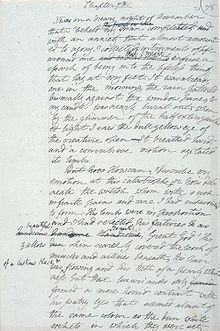 Chapter 7th
It was on a dreary night of November
that I beheld my man completed, and
with an anxiety that almost amounted
to agony I collected instruments of life
around me
spark of being into the lifeless thing
that lay at my feet. It was already
one in the morning, the rain pattered
dismally against the window panes, &
my candle was nearly burnt out, when
by the glimmer of the half extinguished
light I saw the dull yellow eye of
the creature open. It breathed hard,
and a convulsive motion agitated
its limbs.
But how can I describe my
emotion at this catastrophe; or how deli
neate the wretch whom with such
infinite pains and care I had endeavoured
to form. His limbs were in proportion
and I had selected his features as
handsome. Handsome Great God! His
yellow skin scarcely covered the work of
muscles and arteries beneath; his hair
of a lustrous black &
was flowing and his teeth of a pearly white
ness but these luxuriancies only formed
a more horrid contrast with
his watry eyes that seemed almost of
the same colour as the dun white
sockets in which they were set